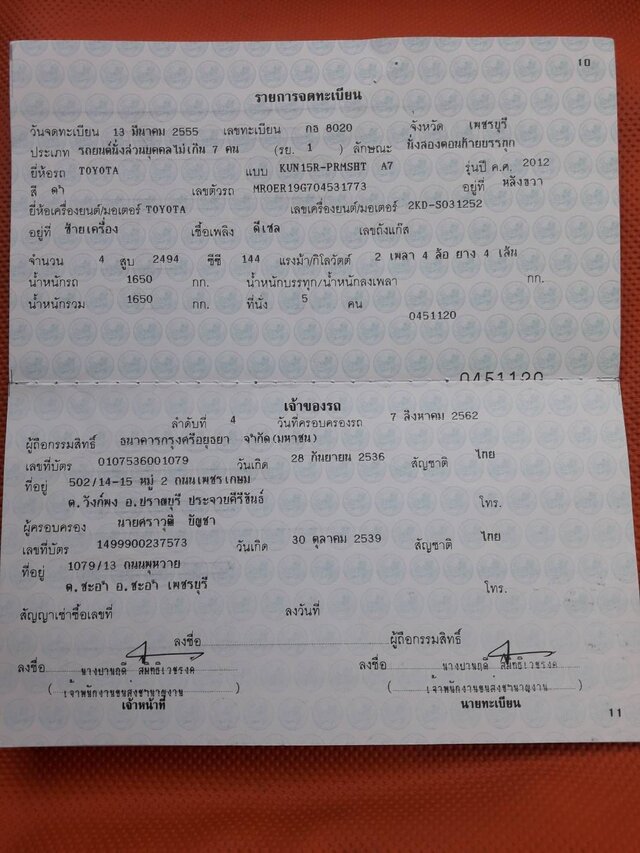 10
รายการจดทะเบียน
วันจดทะเบียน 13 มีนาคม 2555 เลขทะเบียน กธ 8020 จังหวัด เพชรบุรี
ประเภท รถยนต์นั่งส่วนบุคคลไม่เกิน 7 คน (รย. 1 ) ลักษณะ นั่งสองตอนท้ายบรรทุก
ยี่ห้อรถ TOYOTA แบบ KUN15R-PRMSHT A7 รุ่นปี ค.ศ. 2012
สี ดำ เลขตัวรถ MROER19G704531773 อยู่ที่ หลังขวา
ยี่ห้อเครื่องยนต์/มอเตอร์ TOYOTA เลขเครื่องยนต์/มอเตอร์ 2KD-S031252
อยู่ที่ ซ้ายเครื่อง เชื้อเพลิง ดีเซล เลขถังแก๊ส
จำนวน 4 สูบ 2494 ซีซี 144 แรงม้า/กิโลวัตต์ 2 เพลา 4 ล้อ ยาง 4 เส้น
น้ำหนักรถ 1650 กก. น้ำหนักบรรทุก/น้ำหนักลงเพลา กก.
น้ำหนักรวม 1650 กก. ที่นั่ง 5 คน
0451120
0451120
เจ้าของรถ
ลำดับที่ 4 วันที่ครอบครองรถ 7 สิงหาคม 2562
ผู้ถือกรรมสิทธิ์ ธนาคารกรุงศรีอยุธยา จำกัด(มหาชน)
เลขที่บัตร 0107536001079 วันเกิด 28 กันยายน 2536 สัญชาติ ไทย
ที่อยู่ 502/14-15 หมู่ 2 ถนนเพชรเกษม
ต.วังก์พง อ.ปราณบุรี ประจวบคีรีขันธ์ โทร.
ผู้ครอบครอง นายศราวุฒิ บัญชา
เลขที่บัตร 1499900237573 วันเกิด 30 ตุลาคม 2539 สัญชาติ ไทย
ที่อยู่ 1079/13 ถนนพุหวาย
ต.ชะอำ อ.ชะอำ เพชรบุรี โทร.
สัญญาเช่าซื้อเลขที่ ลงวันที่
ลงชื่อ ผู้ถือกรรมสิทธิ์
ลงชื่อ ลงชื่อ
(เจ้าพนักงานขนส่งชำนาญงาน) (เจ้าพนักงานขนส่งชำนาญงาน)
เจ้าหน้าที่ นายทะเบียน
11